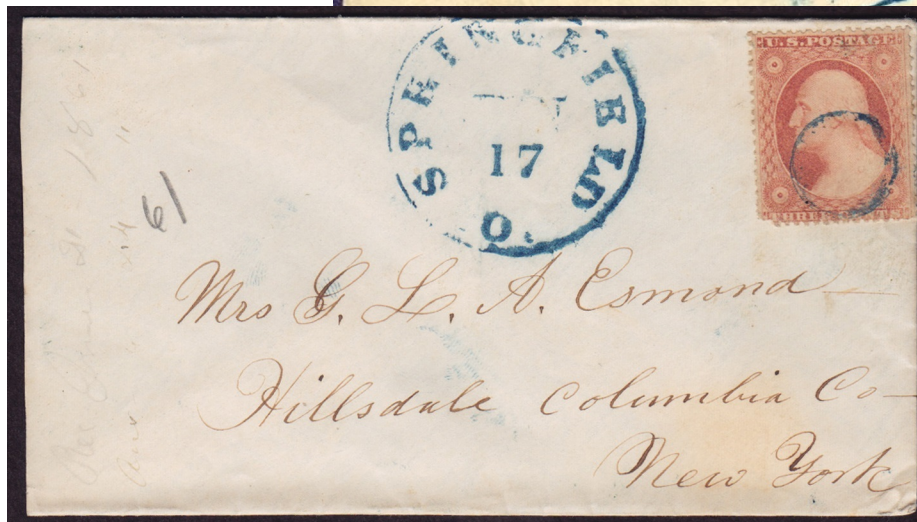 SPRINGFIELD
17
O.
U.S. POSTAGE
THREE CENTS
61
Mrs G. L. A. Esmond
Hillsdale Columbia Co
New York